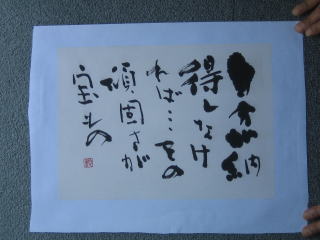 自分が納
得しなけ
れば…その
頑固さが
宝もの